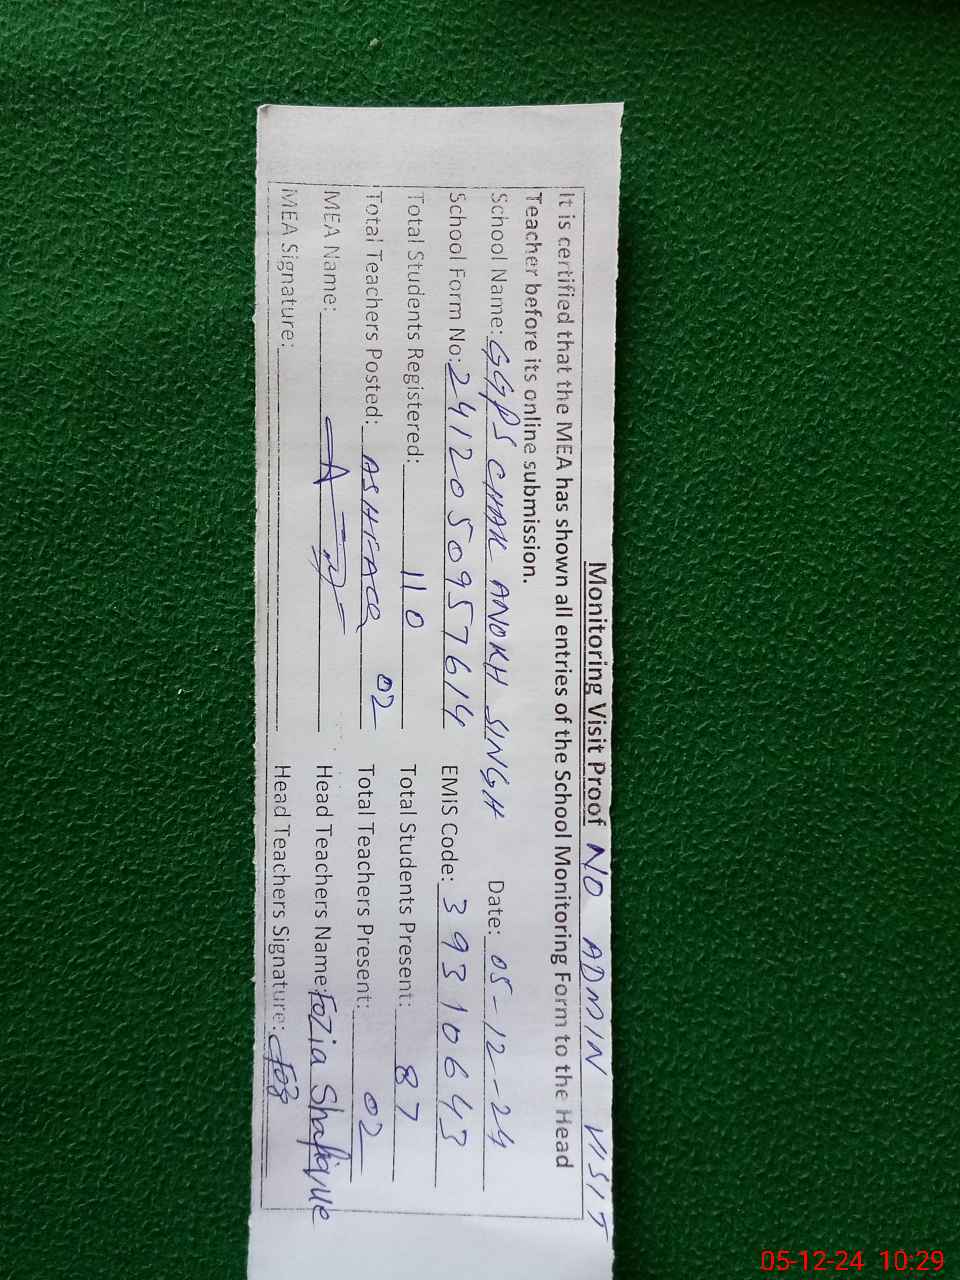 Monitoring Visit Proof NO ADMIN VISIT
It is certified that the MEA has shown all entries of the School Monitoring Form to the Head
Teacher before its online submission.
School Name: GGPS CHAK ANOKH SINGH Date: 05-12-24
School Form No: 241205095 7614 EMIS Code: 39310643
Total Students Registered: 110 Total Students Present: 87
Total Teachers Posted: 02 Total Teachers Present: 02
MEA Name: ASHFAQ Head Teachers Name: Fozia Shafique
MEA Signature: Head Teachers Signature: Foz
05-12-24 10:29